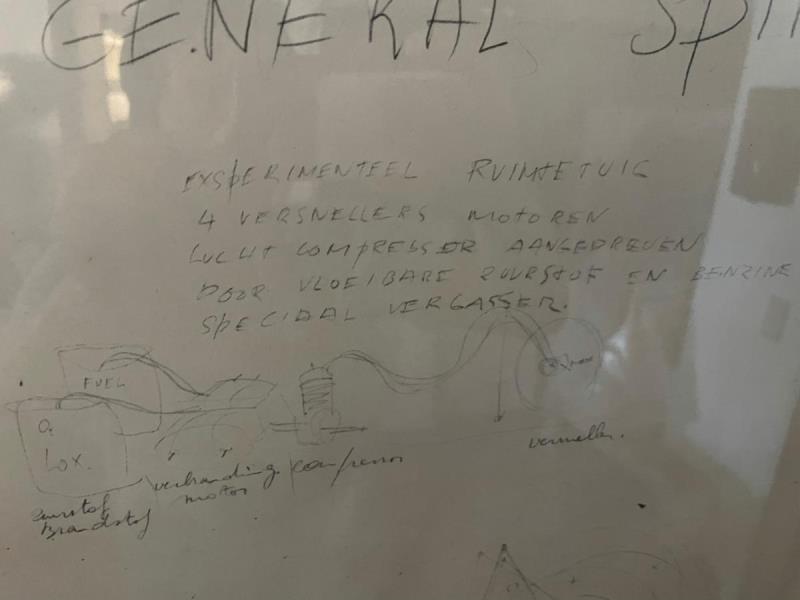 GENERAL SPI
EXSPERIMENTEEL RUIMTETUIG
4 VERSNELLERS MOTOREN
LUCHT COMPRESSOR AANGEDREVEN
DOOR VLOEIBARE ZUURSTOF EN BENZINE
SPECIAAL VERGASSER.
FUEL
O2
LOX.
zuurstof
Brandstof
verbranding
motor
compressor
versneller.